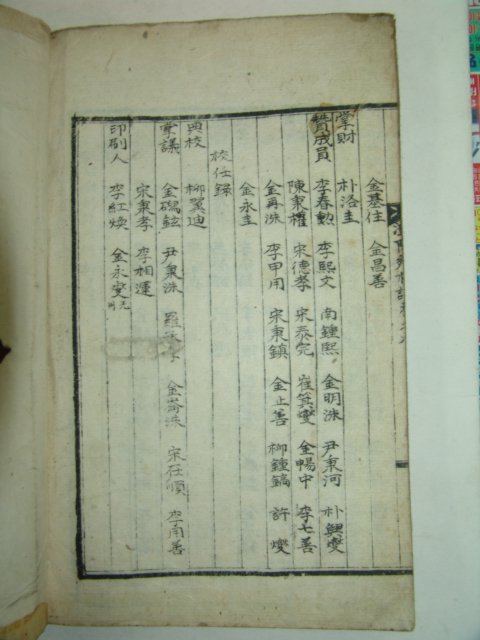 金基任 金昌善
掌財 朴洛圭
贊成員 李春勲 李熙文 南鍾熙 金明洙 尹秉河 朴興燮
陳秉權 宋德孝 宋泰完 崔箕燮 金暢中 李七善
金再洙 李甲用 宋秉鎮 金止善 柳鍾鎬 許燮
金永圭
校任錄
典校 柳冀迪
掌議 金 鉉 尹秉洙 羅 金崙洙 宋在順 李南善
宋秉孝 李相運
印刷人 李紅煥 金永燮